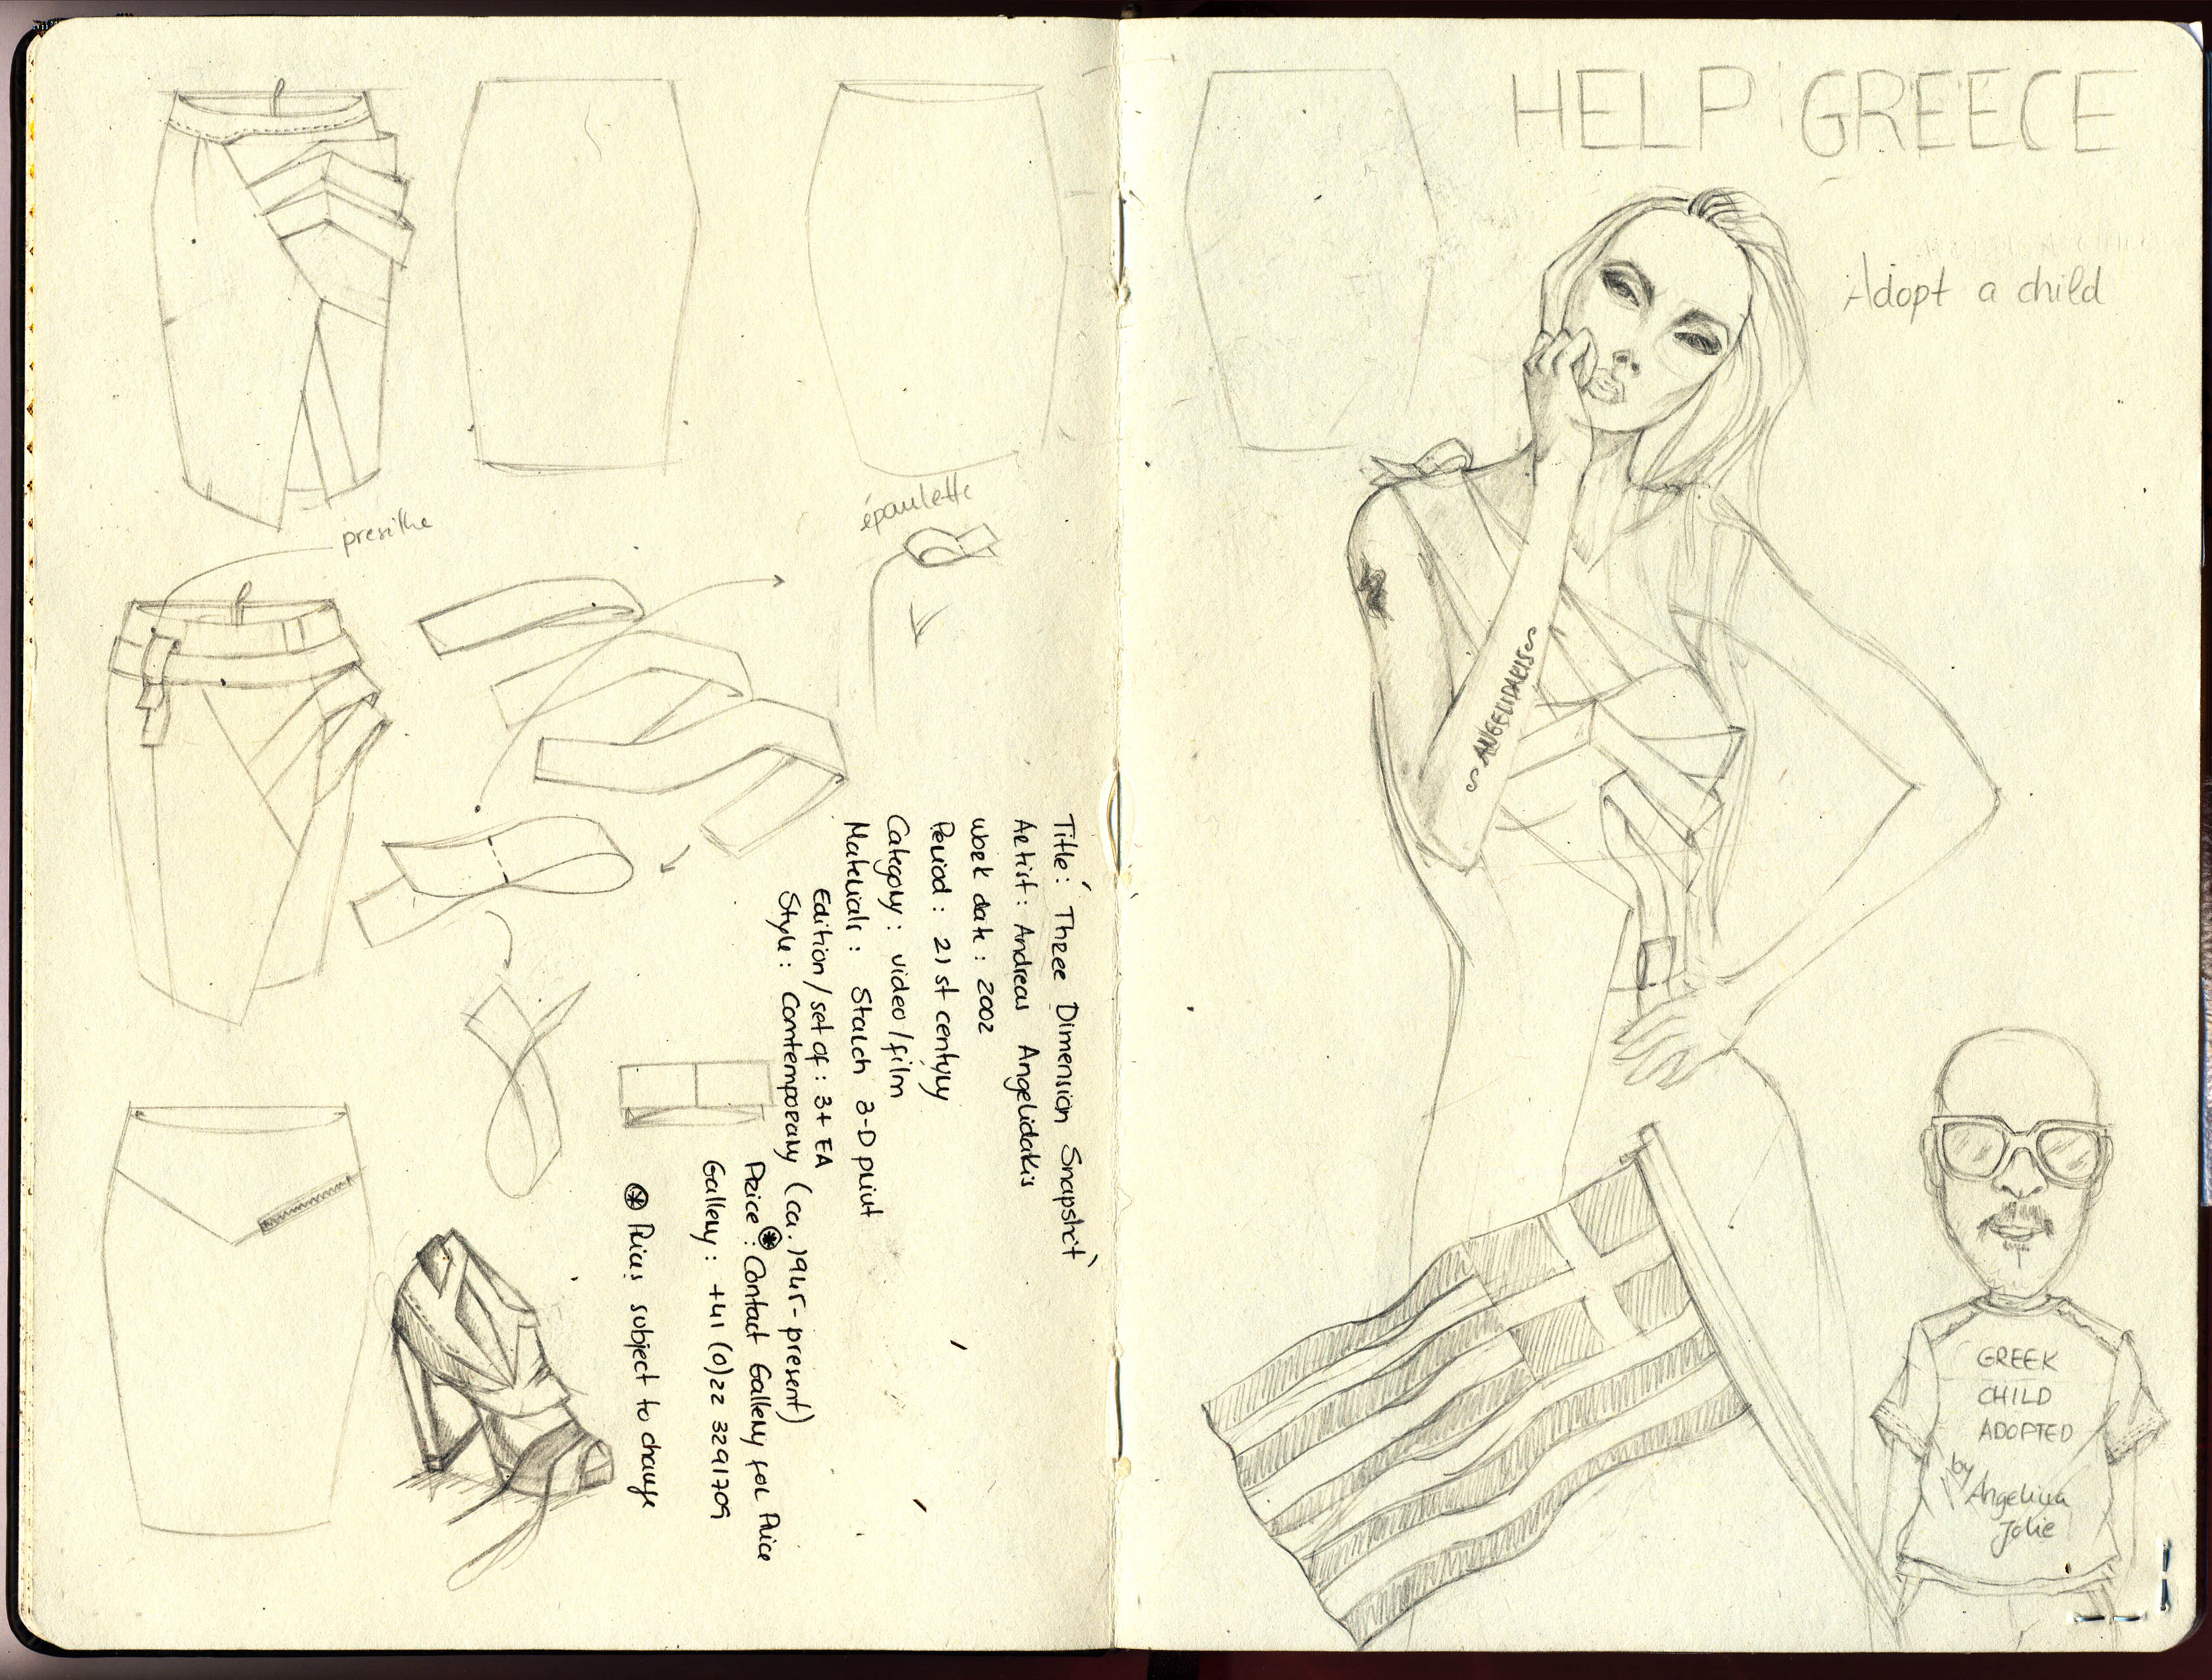 épaulette
Title: Three Dimension Snapshot
Artist: Andreas Angelidakis
Work date: 2002
Period: 21st century
Category: video/film
Materials: Starch 3-D print
Edition/set of: 3+ EA
Style: Contemporary (ca. 1945-present)
Price⊛: Contact Gallery for Price
Gallery: +41 (0)22 3291709
⊛ Prices subject to change
HELP GREECE
Adopt a child
~ANGELIDAKIS~
GREEK
CHILD
ADOPTED
by
Angelina
Jolie